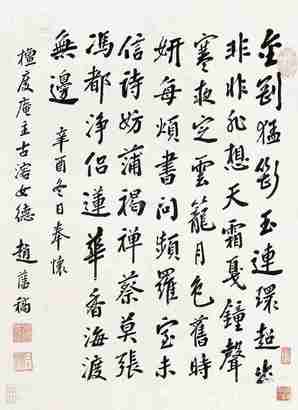 金剛猛斷玉連環超出
非非非想天霜戛鐘聲
寒夜定雲籠月色舊時
妍每煩書問頻羅室未
信詩妨蒲褐禪蔡莫張
馮都淨侶蓮華香海渡
無邊 辛酉冬日奉懷
檀度庵主古溶女德 趙藩稿